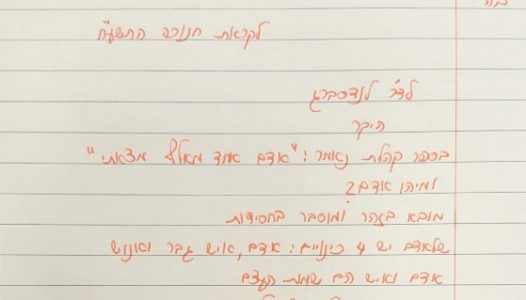 לקראת חנוכה התשע"ח
לד"ר לנדסברג
היקר
בספר קהלת נאמר: "אדם אחד מאלף מצאתי"
ומיהו אדם?
מובא בזהר ומוסבר בחסידות
שלאדם יש 4 כינויים: אדם, איש גבר ואנוש
אדם ואיש הם שמות העצם